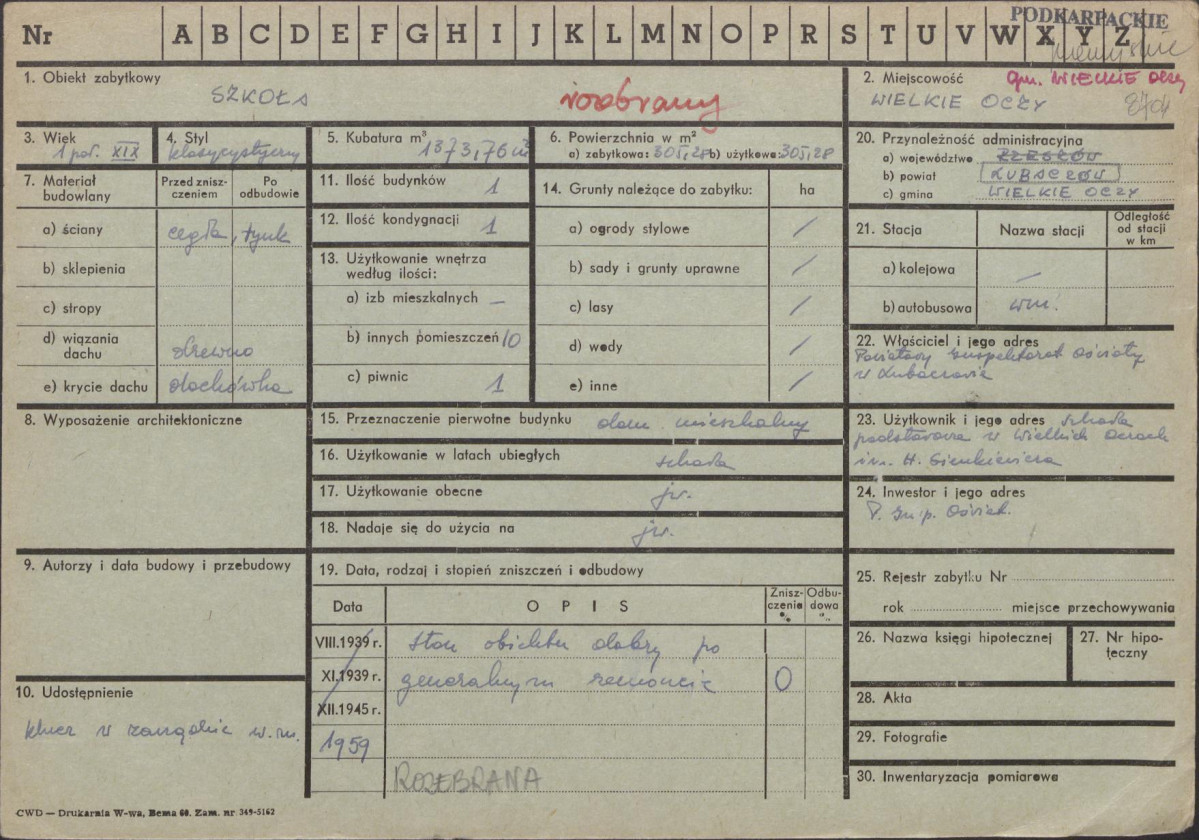 Nr A B C D E F G H I J K L M N O P R S T U V W X Y Z
PODKARPACKIE
1. Obiekt zabytkowy
SZKOŁA
rozebrany
2. Miejscowość gm. WIELKIE OCZY
WIELKIE OCZY
3. Wiek
1 poł. XIX
4. Styl
klasycystyczny
5. Kubatura m³
1373,76 m³
6. Powierzchnia w m²
a) zabytkowa: 305,28 b) użytkowa: 305,28
20. Przynależność administracyjna
a) województwo RZESZÓW
b) powiat LUBACZÓW
c) gmina WIELKIE OCZY
7. Materiał budowlany
Przed znisz-
czeniem
Po
odbudowie
a) ściany cegła, tynk
b) sklepienia
c) stropy
d) wiązania
dachu drewno
e) krycie dachu dachówka
11. Ilość budynków 1
12. Ilość kondygnacji 1
13. Użytkowanie wnętrza
według ilości:
a) izb mieszkalnych —
b) innych pomieszczeń 10
c) piwnic 1
14. Grunty należące do zabytku: ha
a) ogrody stylowe /
b) sady i grunty uprawne /
c) lasy /
d) wody /
e) inne /
21. Stacja Nazwa stacji
Odległość
od stacji
w km
a) kolejowa —
b) autobusowa wm.
22. Właściciel i jego adres
Powiatowy Inspektorat Oświaty
w Lubaczowie
8. Wyposażenie architektoniczne
15. Przeznaczenie pierwotne budynku dom mieszkalny
16. Użytkowanie w latach ubiegłych szkoła
17. Użytkowanie obecne jw.
18. Nadaje się do użycia na jw.
23. Użytkownik i jego adres szkoła
podstawowa w Wielkich Oczach
im. H. Sienkiewicza
24. Inwestor i jego adres
P. Insp. Oświat.
9. Autorzy i data budowy i przebudowy
19. Data, rodzaj i stopień zniszczeń i odbudowy
Data OPIS
Znisz-
czenie
%
Odbu-
dowa
%
VIII.1939 r. stan obiektu dobry po
XI.1939 r. generalnym remoncie 0
XII.1945 r.
1959
ROZEBRANA
25. Rejestr zabytku Nr
rok miejsce przechowywania
26. Nazwa księgi hipotecznej
27. Nr hipo-
teczny
28. Akta
29. Fotografie
30. Inwentaryzacja pomiarowa
10. Udostępnienie
klucz w zarządzie w.m.
CWD — Drukarnia W-wa, Bema 60. Zam. nr 349-5162